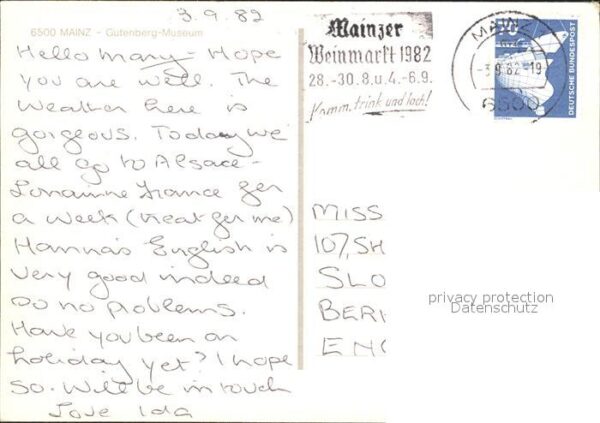 3.9.82
6500 MAINZ - Gutenberg-Museum
Hello Mary - Hope
you are well. The
Weather here is
gorgeous. Today we
all go to Alsace -
Lorrainne France for
a week (treat for me)
Hanna's English is
very good indeed
so no problems.
Have you been on
holiday yet? I hope
so. Will be in touch
Love Ida
Mainzer
Weinmarkt 1982
28.-30.8.u.4.-6.9.
Komm, trink und lach!
MAINZ
-3.9.82-19
6500
DEUTSCHE BUNDESPOST
MISS
107, SH
SLO
BERK
ENG
privacy protection
Datenschutz